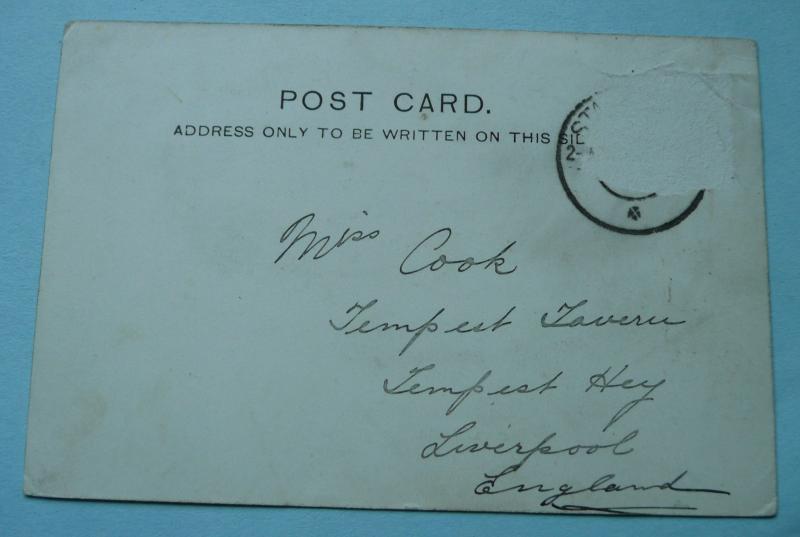 POST CARD.
ADDRESS ONLY TO BE WRITTEN ON THIS
Miss Cook
Tempest Tavern
Tempest Hey
Liverpool
England